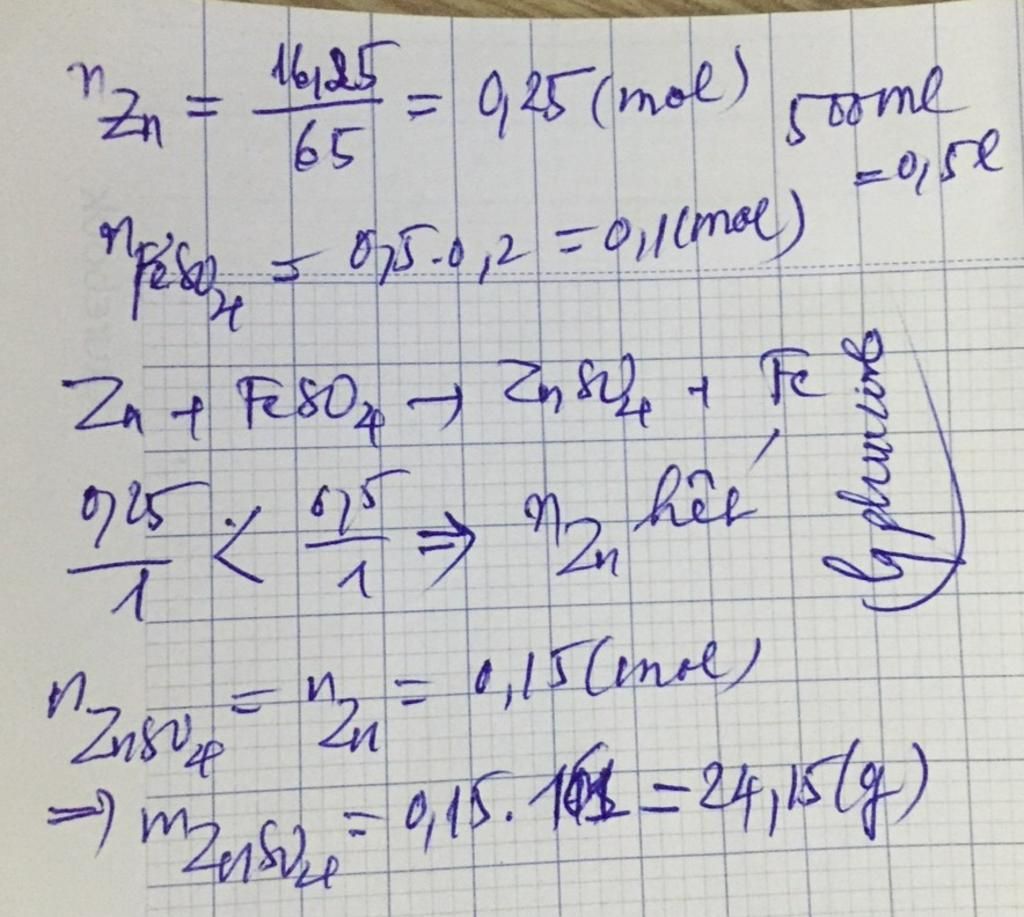 n Zn = 16,25/65 = 0,25 (mol) 500ml
= 0,5l
n FeSO4 = 0,5.0,2 = 0,1 (mol)
Zn + FeSO4 → ZnSO4 + Fe
0,25/1 < 0,5/1 ⇒ n Zn hết
n ZnSO4 = n Zn = 0,15 (mol)
⇒ m ZnSO4 = 0,15. 161 = 24,15 (g)